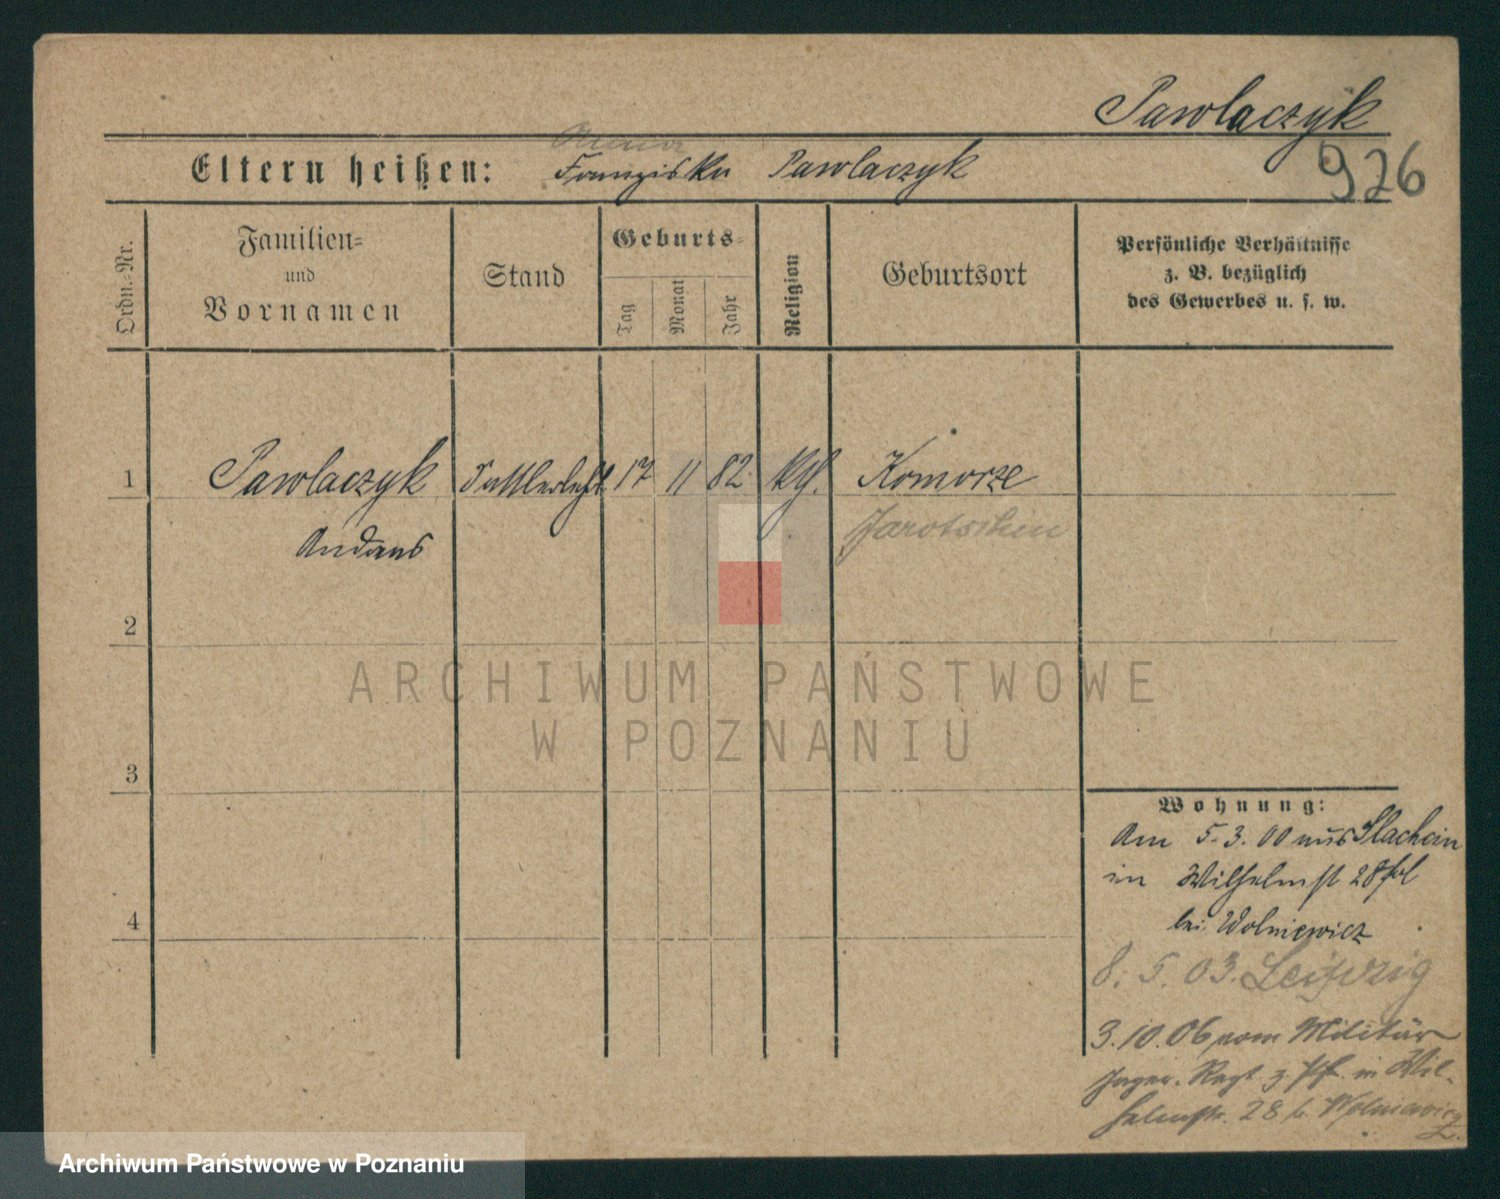 Pawlaczyk
926
Eltern heißen: Franziska Pawlaczyk
Ordn.-Nr.
Familien-
und
Vornamen
Stand
Geburts-
Tag
Monat
Jahr
Religion
Geburtsort
Persönliche Verhältnisse
z. B. bezüglich
des Gewerbes u. s. w.
1 Pawlaczyk Sattlerlehrl 17 11 82 kth. Komorze
Andreas Jarotschin
2
ARCHIWUM PAŃSTWOWE
W POZNANIU
3
Wohnung:
Am 5.3.00 aus
in Wilhelmst 28
bei Wolniewicz
4
8.5.03. Leipzig
3.10.06 vom Militär
Regt. z in Wil-
helmstr. 28 b. Wolniewicz
Archiwum Państwowe w Poznaniu